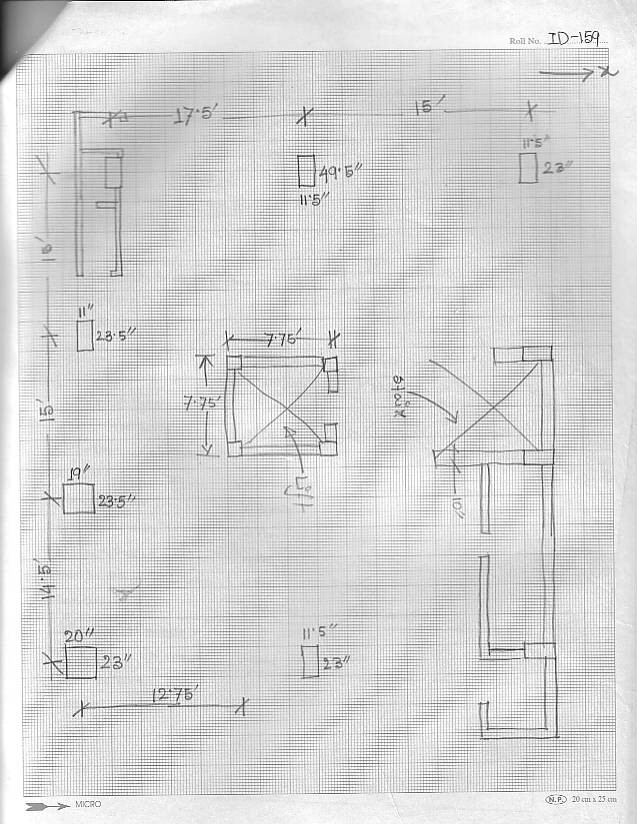 Roll No. ID-159
x
17.5'
15'
11.5"
49.5"
23"
11.5"
15'
11"
23.5"
7.75'
7.75'
15'
19"
23.5"
10"
14.5'
20"
23"
11.5"
23"
12.75'
MICRO
N.P. 20 cm x 25 cm